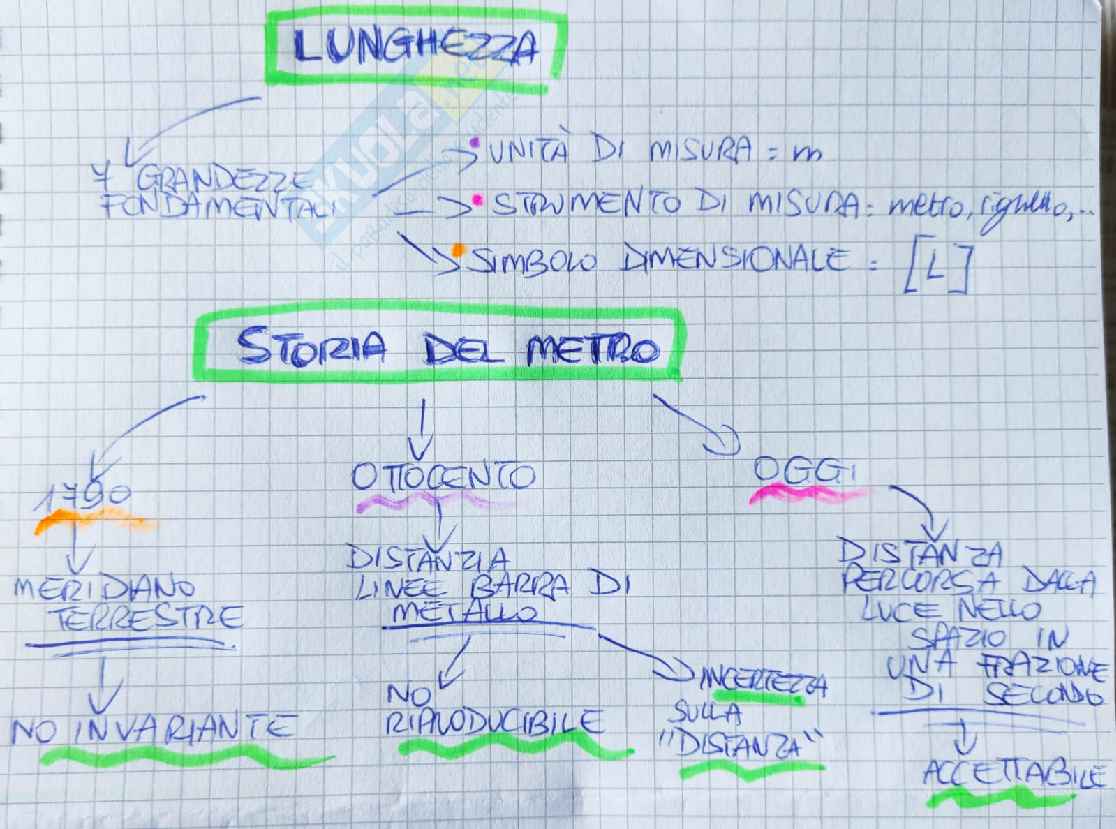 LUNGHEZZA
7 GRANDEZZE
FONDAMENTALI
UNITÀ DI MISURA = m
STRUMENTO DI MISURA = metro, righello, ...
SIMBOLO DIMENSIONALE = [L]
STORIA DEL METRO
1790
MERIDIANO
TERRESTRE
NO INVARIANTE
OTTOCENTO
DISTANZIA
LINEE BARRA DI
METALLO
NO
RIPRODUCIBILE
INCERTEZZA
SULLA
"DISTANZA"
OGGI
DISTANZA
PERCORSA DALLA
LUCE NELLO
SPAZIO IN
UNA FRAZIONE
DI SECONDO
ACCETTABILE